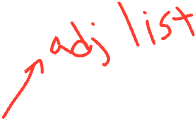 adj list